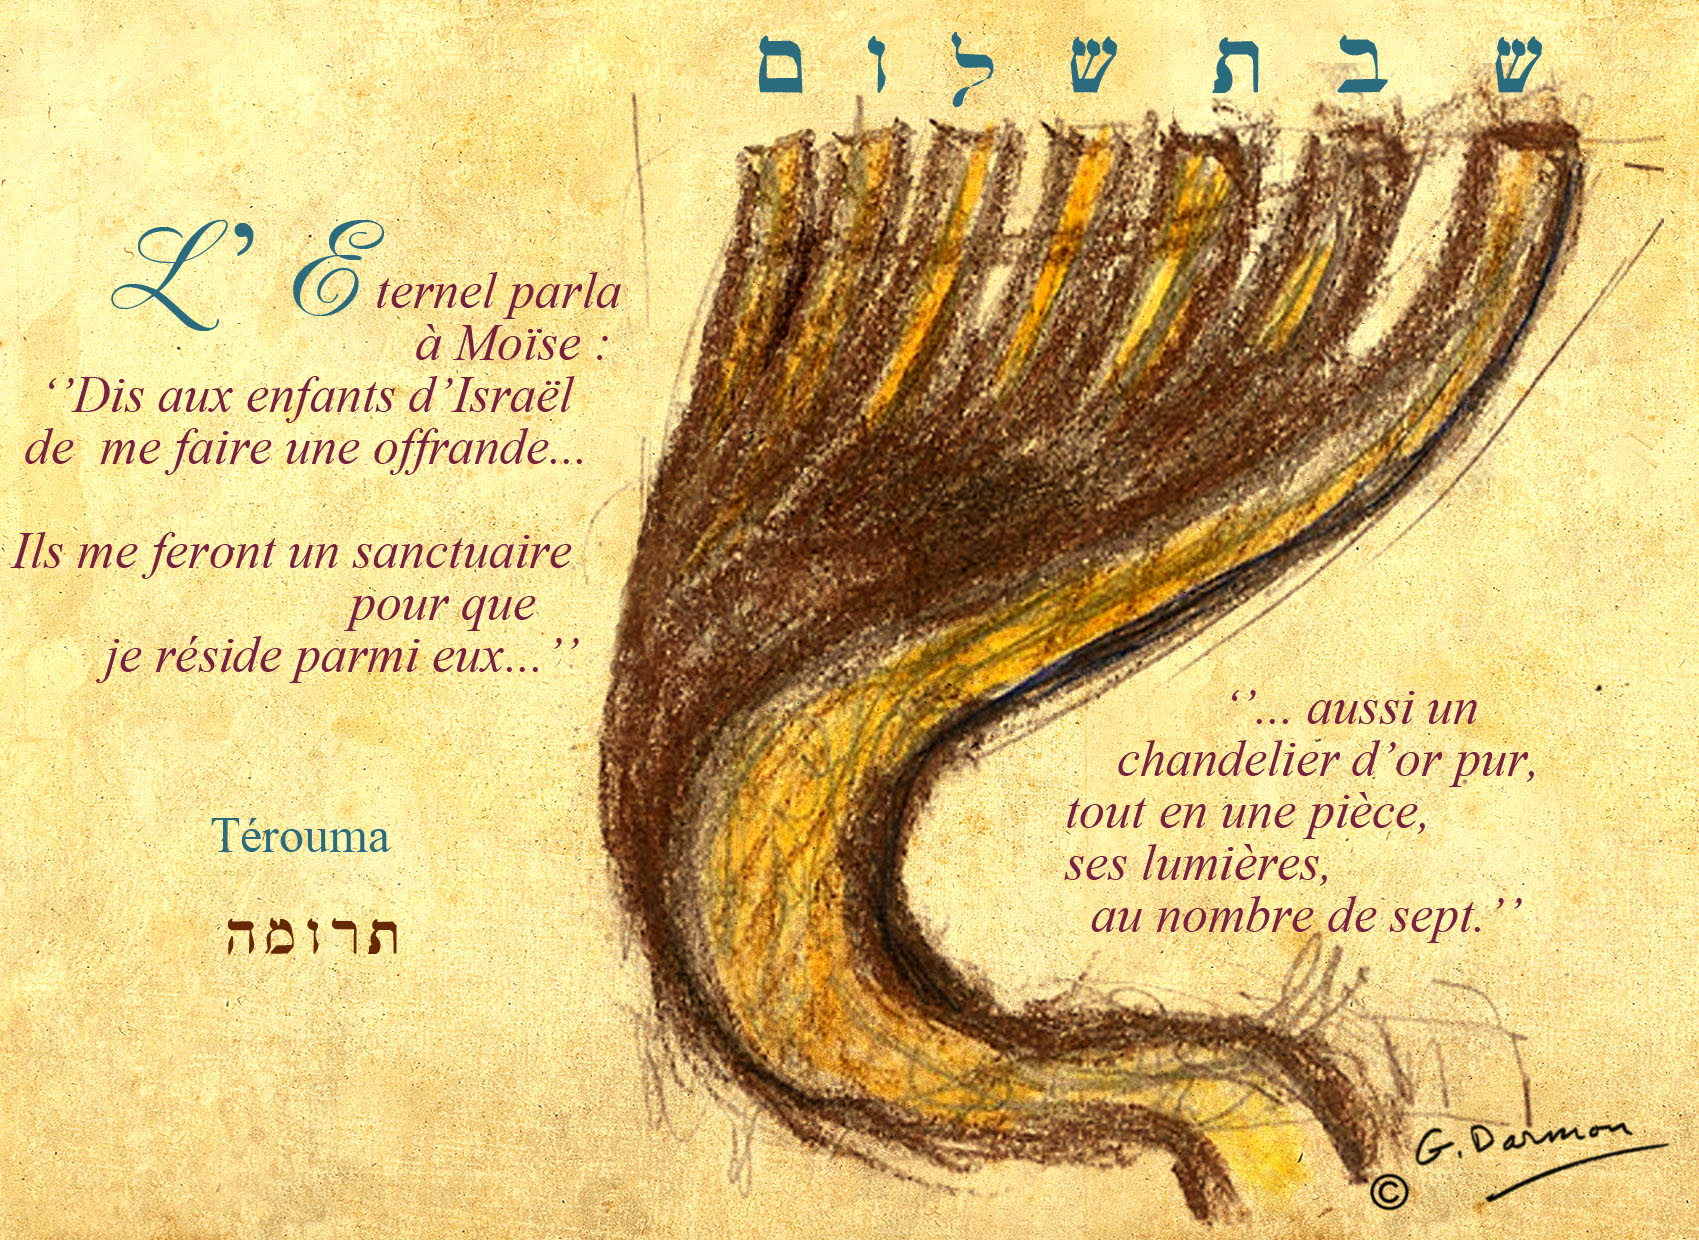 שבת שלום
L’ Eternel parla
à Moïse :
‘’Dis aux enfants d’Israël
de me faire une offrande...
Ils me feront un sanctuaire
pour que
je réside parmi eux...’’
Térouma
תרומה
‘’... aussi un
chandelier d’or pur,
tout en une pièce,
ses lumières,
au nombre de sept.’’
© G. Darmon